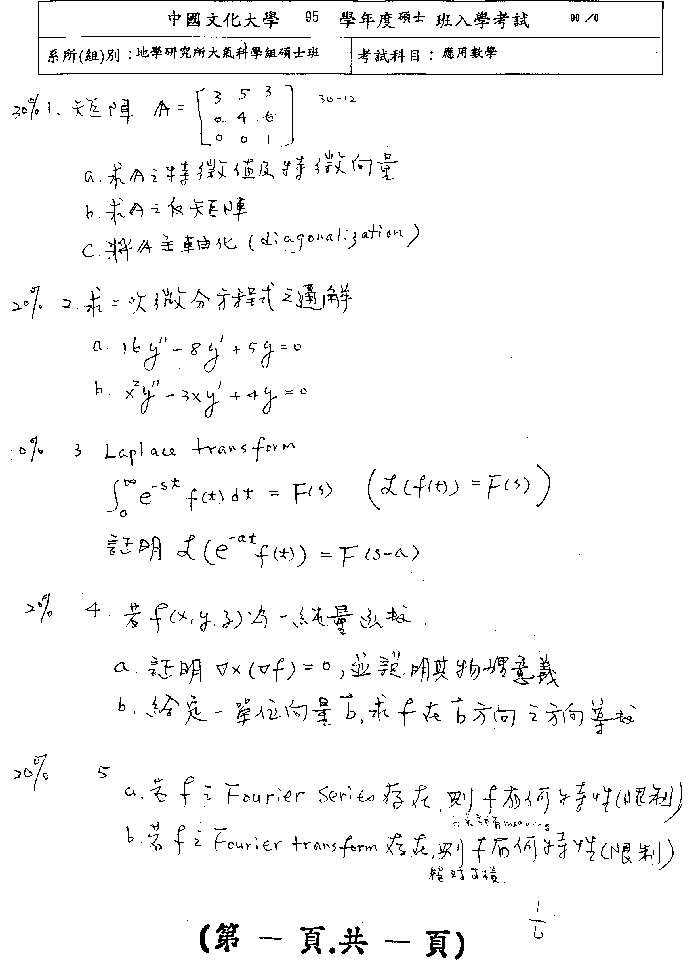 中國文化大學 95 學年度碩士班入學考試
系所(組)別：地學研究所大氣科學組碩士班 考試科目：應用數學
30% 1. 矩陣 A = [ 3 5 3
0 4 6
0 0 1 ] 30-12
a. 求A之特徵值及特徵向量
b. 求A之反矩陣
c. 將A主軸化 (diagonalization)
20% 2. 求二次微分方程式之通解
a. 16y'' - 8y' + 5y = 0
b. x²y'' - 3xy' + 4y = 0
0% 3 Laplace transform
∫₀^∞ e^{-st} f(t) dt = F(s) (ℒ(f(t)) = F(s))
証明 ℒ(e^{-at} f(t)) = F(s-a)
20% 4. 若 f(x,y,z)為一純量函數.
a. 証明 ∇×(∇f) = 0, 並說明其物理意義
b. 給定一單位向量 b⃗, 求 f 在 b⃗ 方向之方向導數
20% 5 a. 若 f 之 Fourier Series 存在, 則 f 有何特性(限制)
b. 若 f 之 Fourier transform 存在, 則 f 有何特性(限制)
(第一頁,共一頁)